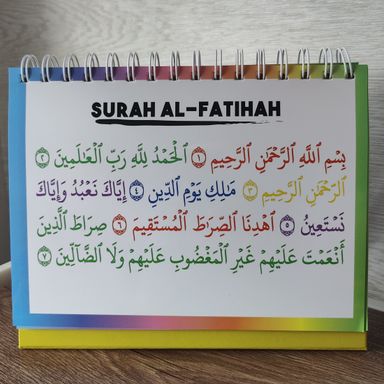 SURAH AL-FATIHAH
بِسْمِ ٱللَّهِ ٱلرَّحْمَٰنِ ٱلرَّحِيمِ ١ ٱلْحَمْدُ لِلَّهِ رَبِّ ٱلْعَٰلَمِينَ ٢
ٱلرَّحْمَٰنِ ٱلرَّحِيمِ ٣ مَٰلِكِ يَوْمِ ٱلدِّينِ ٤ إِيَّاكَ نَعْبُدُ وَإِيَّاكَ
نَسْتَعِينُ ٥ ٱهْدِنَا ٱلصِّرَٰطَ ٱلْمُسْتَقِيمَ ٦ صِرَٰطَ ٱلَّذِينَ
أَنْعَمْتَ عَلَيْهِمْ غَيْرِ ٱلْمَغْضُوبِ عَلَيْهِمْ وَلَا ٱلضَّآلِّينَ ٧